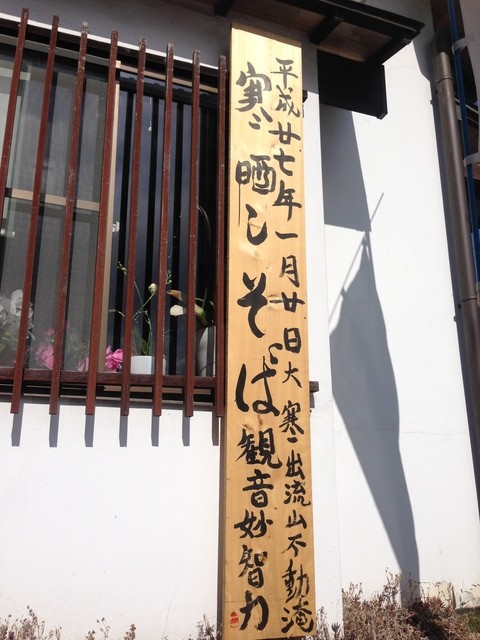 平成廿七年一月廿日大寒出流山不動滝
寒晒しそば観音妙智力